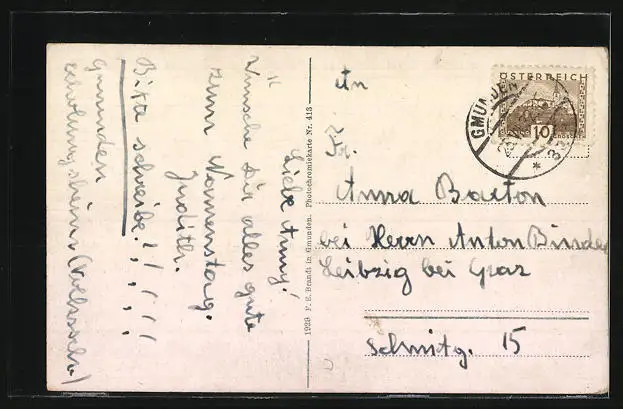 Liebe Anny!
Wünsche Dir alles gute
zum Namenstag.
Judith.
Bitte schreibe!!!!!
Gmunden
Erholungsheim
1929 F. E. Brandt in Gmunden. Photochromiekarte Nr. 413
ÖSTERREICH
10
GMUNDEN
An
Fr.
Anna Barton
bei Herrn Anton Binder
Leibzig bei Graz
Schmitg. 15